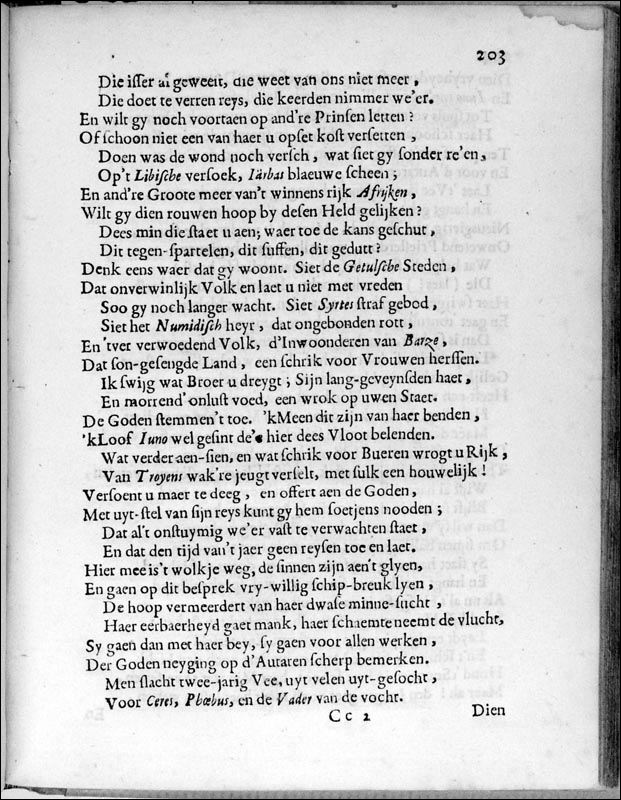 203
Die isser al geweest, die weet van ons niet meer,
Die doet te verren reys, die keerden nimmer we'er.
En wilt gy noch voortaen op and're Prinsen letten?
Of schoon niet een van haer u opset kost versetten,
Doen was de wond noch versch, wat siet gy sonder re'en,
Op't Libische versoek, Iärbas blaeuwe scheen;
En and're Groote meer van't winnens rijk Afrijken,
Wilt gy dien rouwen hoop by desen Held gelijken?
Dees min die staet u aen; waer toe de kans geschut,
Dit tegen-spartelen, dit suffen, dit gedutt?
Denk eens waer dat gy woont. Siet de Getulsche Steden,
Dat onverwinlijk Volk en laet u niet met vreden
Soo gy noch langer wacht. Siet Syrtes straf gebod,
Siet het Numidisch heyr, dat ongebonden rott,
En 'tver verwoedend Volk, d'Inwoonderen van Barze,
Dat son-gesengde Land, een schrik voor Vrouwen herssen.
Ik swijg wat Broer u dreygt; Sijn lang-geveynsden haet,
En morrend' onlust voed, een wrok op uwen Staet.
De Goden stemmen't toe. 'kMeen dit zijn van haer benden,
'kLoof Iuno wel gesint de' hier dees Vloot belenden.
Wat verder aen-sien, en wat schrik voor Bueren wrogt u Rijk,
Van Troyens wak're jeugt verselt, met sulk een houwelijk!
Versoent u maer te deeg, en offert aen de Goden,
Met uyt-stel van sijn reys kunt gy hem soetjens nooden;
Dat al't onstuymig we'er vast te verwachten staet,
En dat den tijd van't jaer geen reysen toe en laet.
Hier mee is't wolkje weg, de sinnen zijn aen't glyen,
En gaen op dit besprek vry-willig schip-breuk lyen,
De hoop vermeerdert van haer dwase minne-sucht,
Haer eerbaerheyd gaet mank, haer schaemte neemt de vlucht,
Sy gaen dan met haer bey, sy gaen voor allen werken,
Der Goden neyging op d'Autaren scherp bemerken.
Men slacht twee-jarig Vee, uyt velen uyt-gesocht,
Voor Ceres, Phœbus, en de Vader van de vocht.
Cc 2
Dien